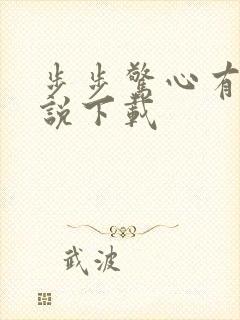 步步驚心有
說下載
武波